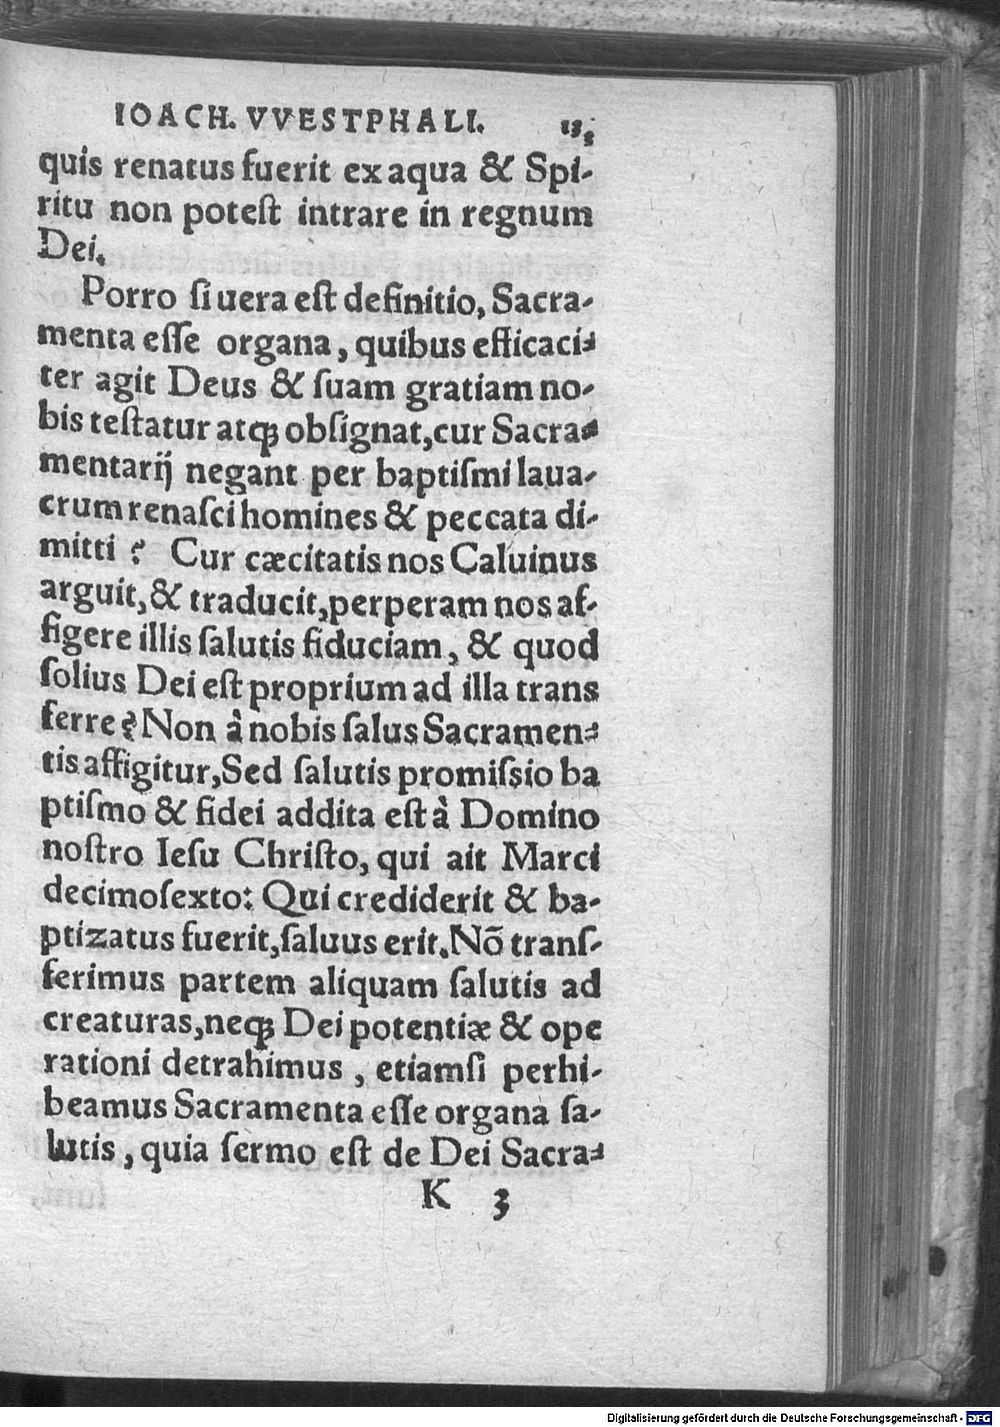 IOACH. VVESTPHALI.
quis renatus fuerit ex aqua & Spi-
ritu non poteſt intrare in regnum
Dei.
Porro ſi uera eſt definitio, Sacra-
menta eſſe organa, quibus efficaci-
ter agit Deus & ſuam gratiam no-
bis teſtatur atꝗ obſignat, cur Sacra-
mentarij negant per baptiſmi laua-
crum renaſci homines & peccata di-
mitti? Cur cæcitatis nos Caluinus
arguit, & traducit, perperam nos af-
figere illis ſalutis fiduciam, & quod
ſolius Dei eſt proprium ad illa trans
ferre? Non à nobis ſalus Sacramen-
tis affigitur, Sed ſalutis promiſsio ba
ptiſmo & fidei addita eſt à Domino
noſtro Ieſu Chriſto, qui ait Marci
decimoſexto: Qui crediderit & ba-
ptizatus fuerit, ſaluus erit. Nō tranſ-
ferimus partem aliquam ſalutis ad
creaturas, neꝗ Dei potentiæ & ope
rationi detrahimus, etiamſi perhi-
beamus Sacramenta eſſe organa ſa-
lutis, quia ſermo eſt de Dei Sacra-
K 3
Digitalisierung gefördert durch die Deutsche Forschungsgemeinschaft - DFG